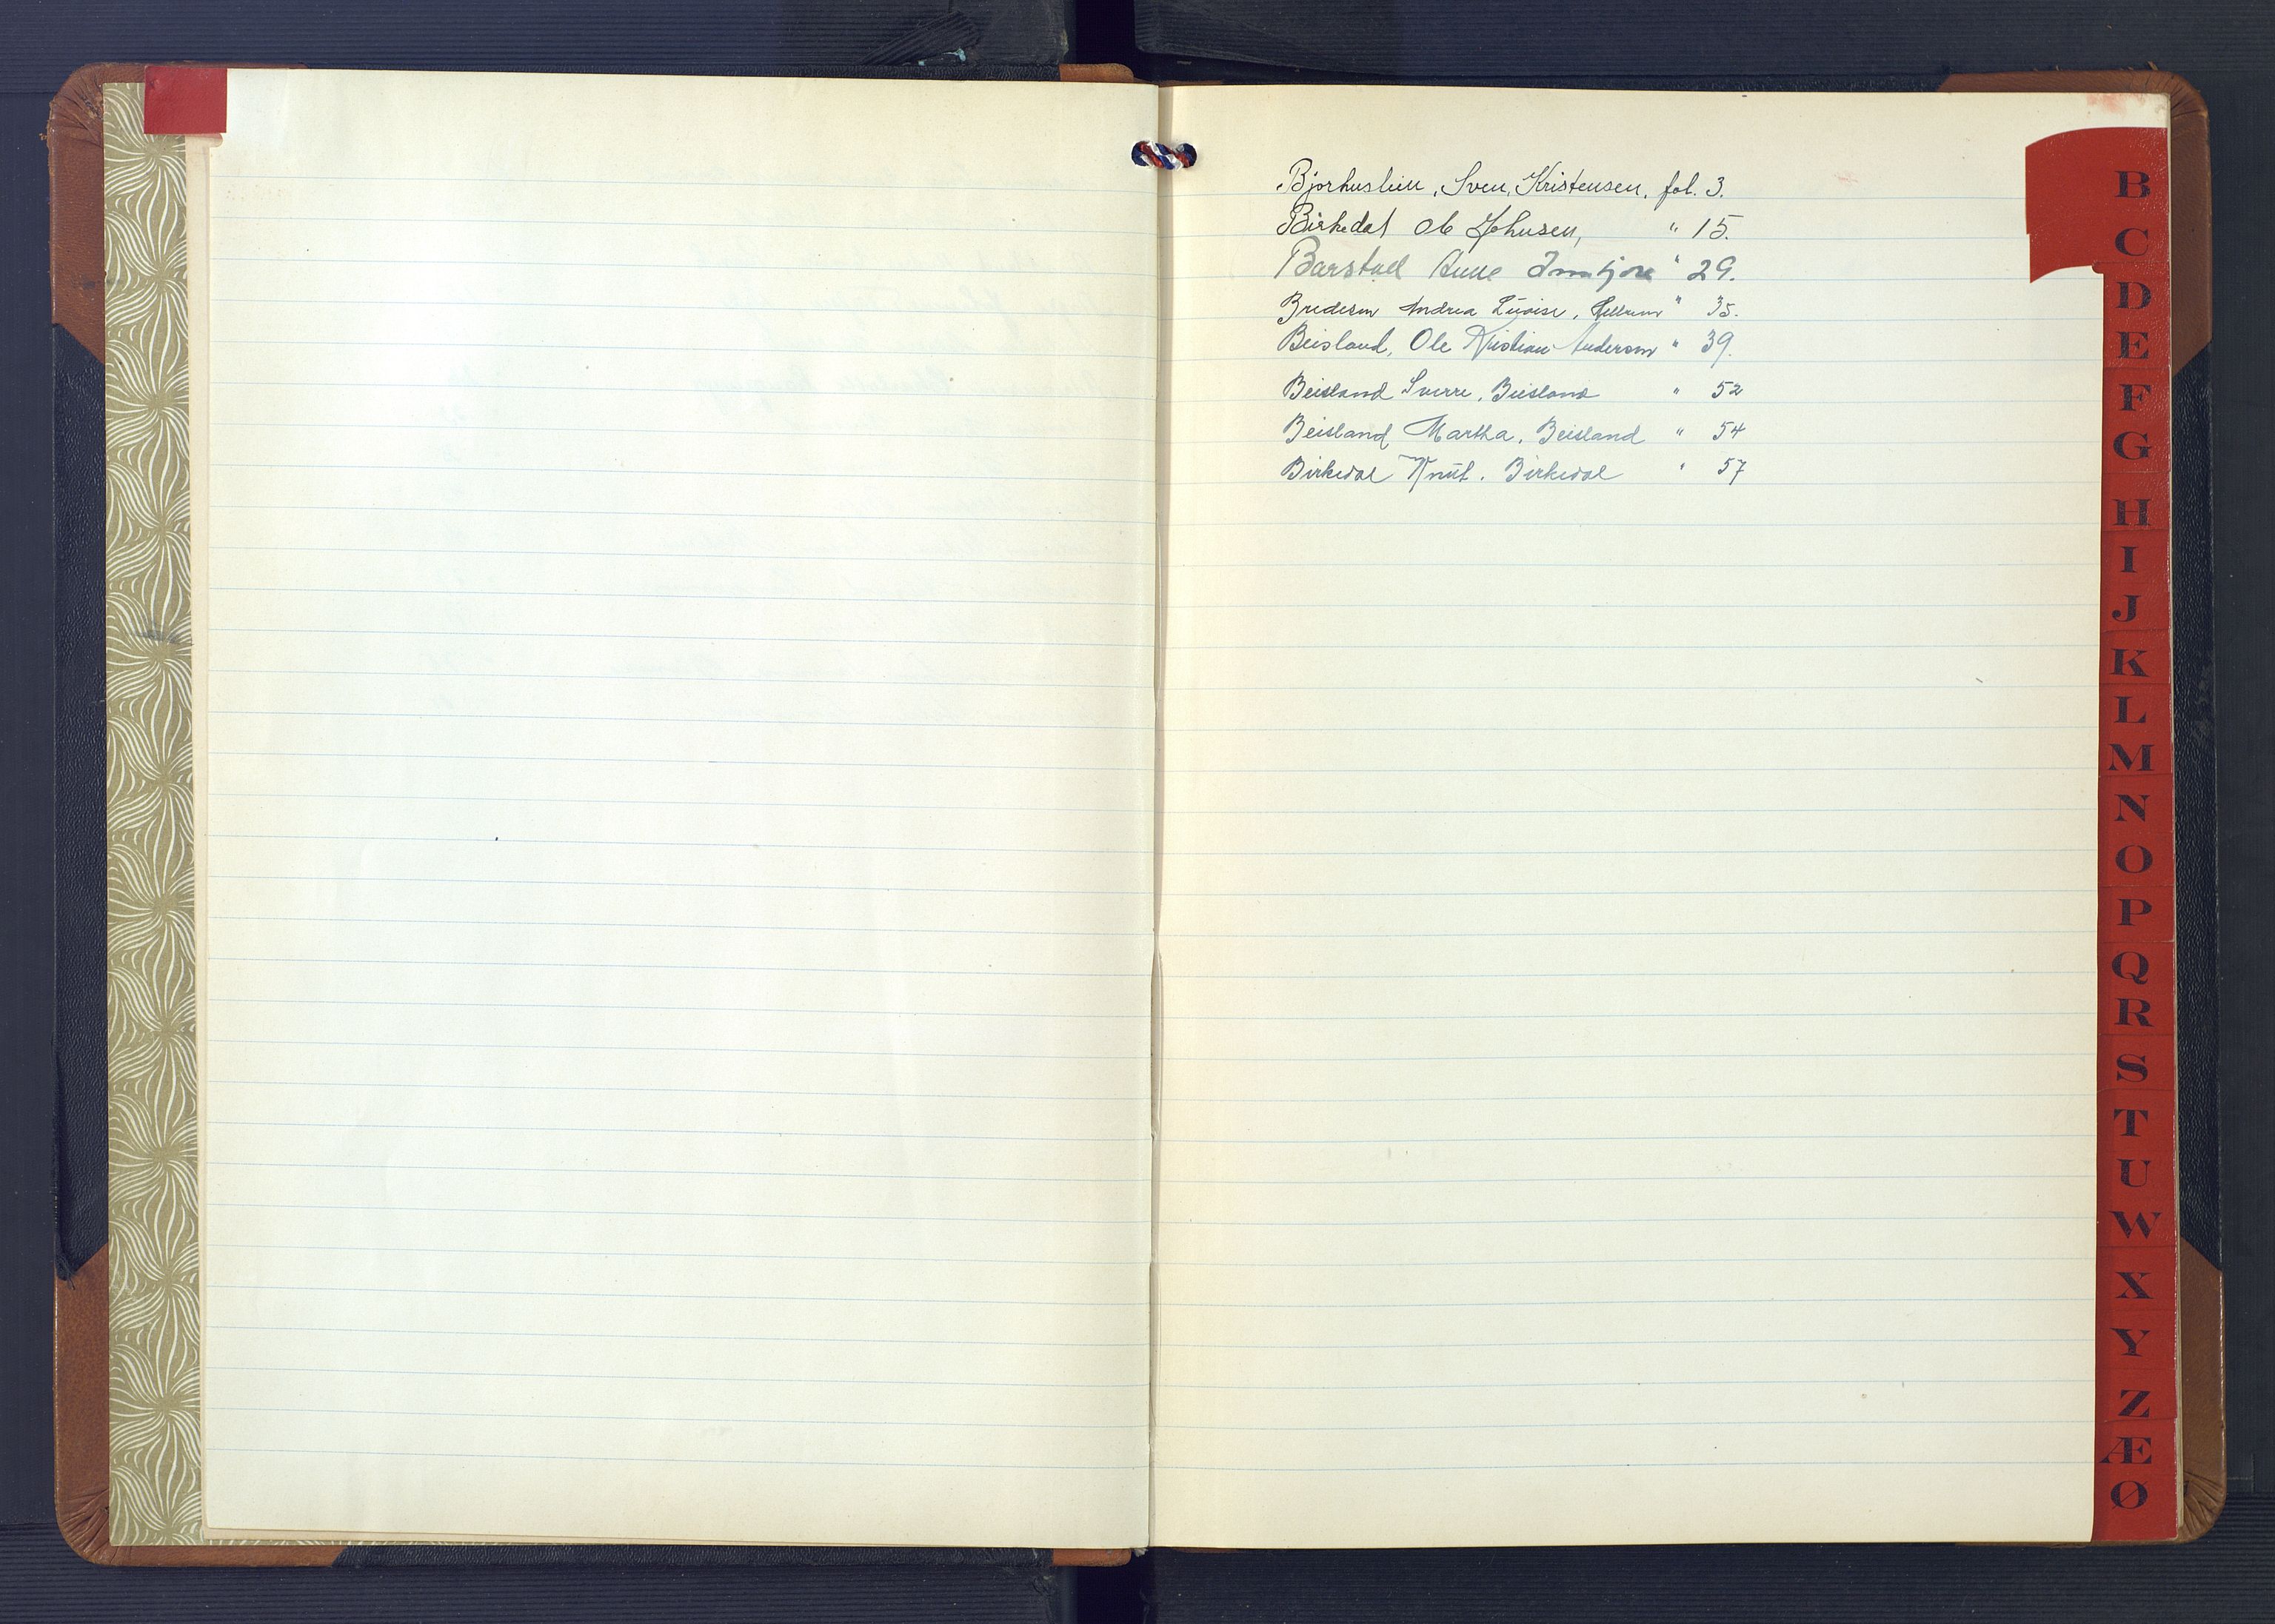 Bjorhuslien, Sven, Kristensen, fol. 3.
Birkedal Ole Johnsen, " 15.
Barstad Anne " 29.
Andrea Lovise, " 35.
Beisland, Ole Kristian Anderson " 39.
Beisland Sverre, Beisland " 52
Beisland Martha, Beisland " 54
Birkedal Knut. Birkedal " 57
B
C
D
E
F
G
H
I
J
K
L
M
N
O
P
Q
R
S
T
U
W
X
Y
Z
Æ
Ø